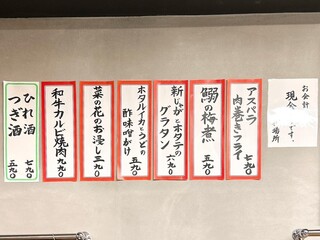 お会計
現金
です。
場所
アスパラ
肉巻きフライ
七九〇
鰯の梅煮
五九〇
新じゃがとホタテの
グラタン
六九〇
ホタルイカとうどの
酢味噌がけ
五九〇
菜の花のお浸し
三九〇
和牛カルビ焼肉
九九〇
ひれ酒
七九〇
つぎ酒
五九〇